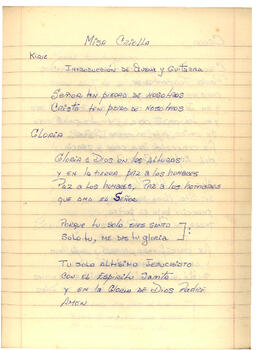 Misa Criolla
Kirie
Introducción de Quena y Guitarra
Señor ten piedad de nosotros
Cristo ten piedad de nosotros
Gloria
Gloria a Dios en las alturas
y en la tierra, paz a los hombres
Paz a los hombres, Paz a los hombres
que ama el Señor
Porque tu solo eres santo
Solo tu, me das tu gloria
Tu solo Altísimo Jesucristo
con el Espíritu Santo
y en la Gloria de Dios Padre
Amen